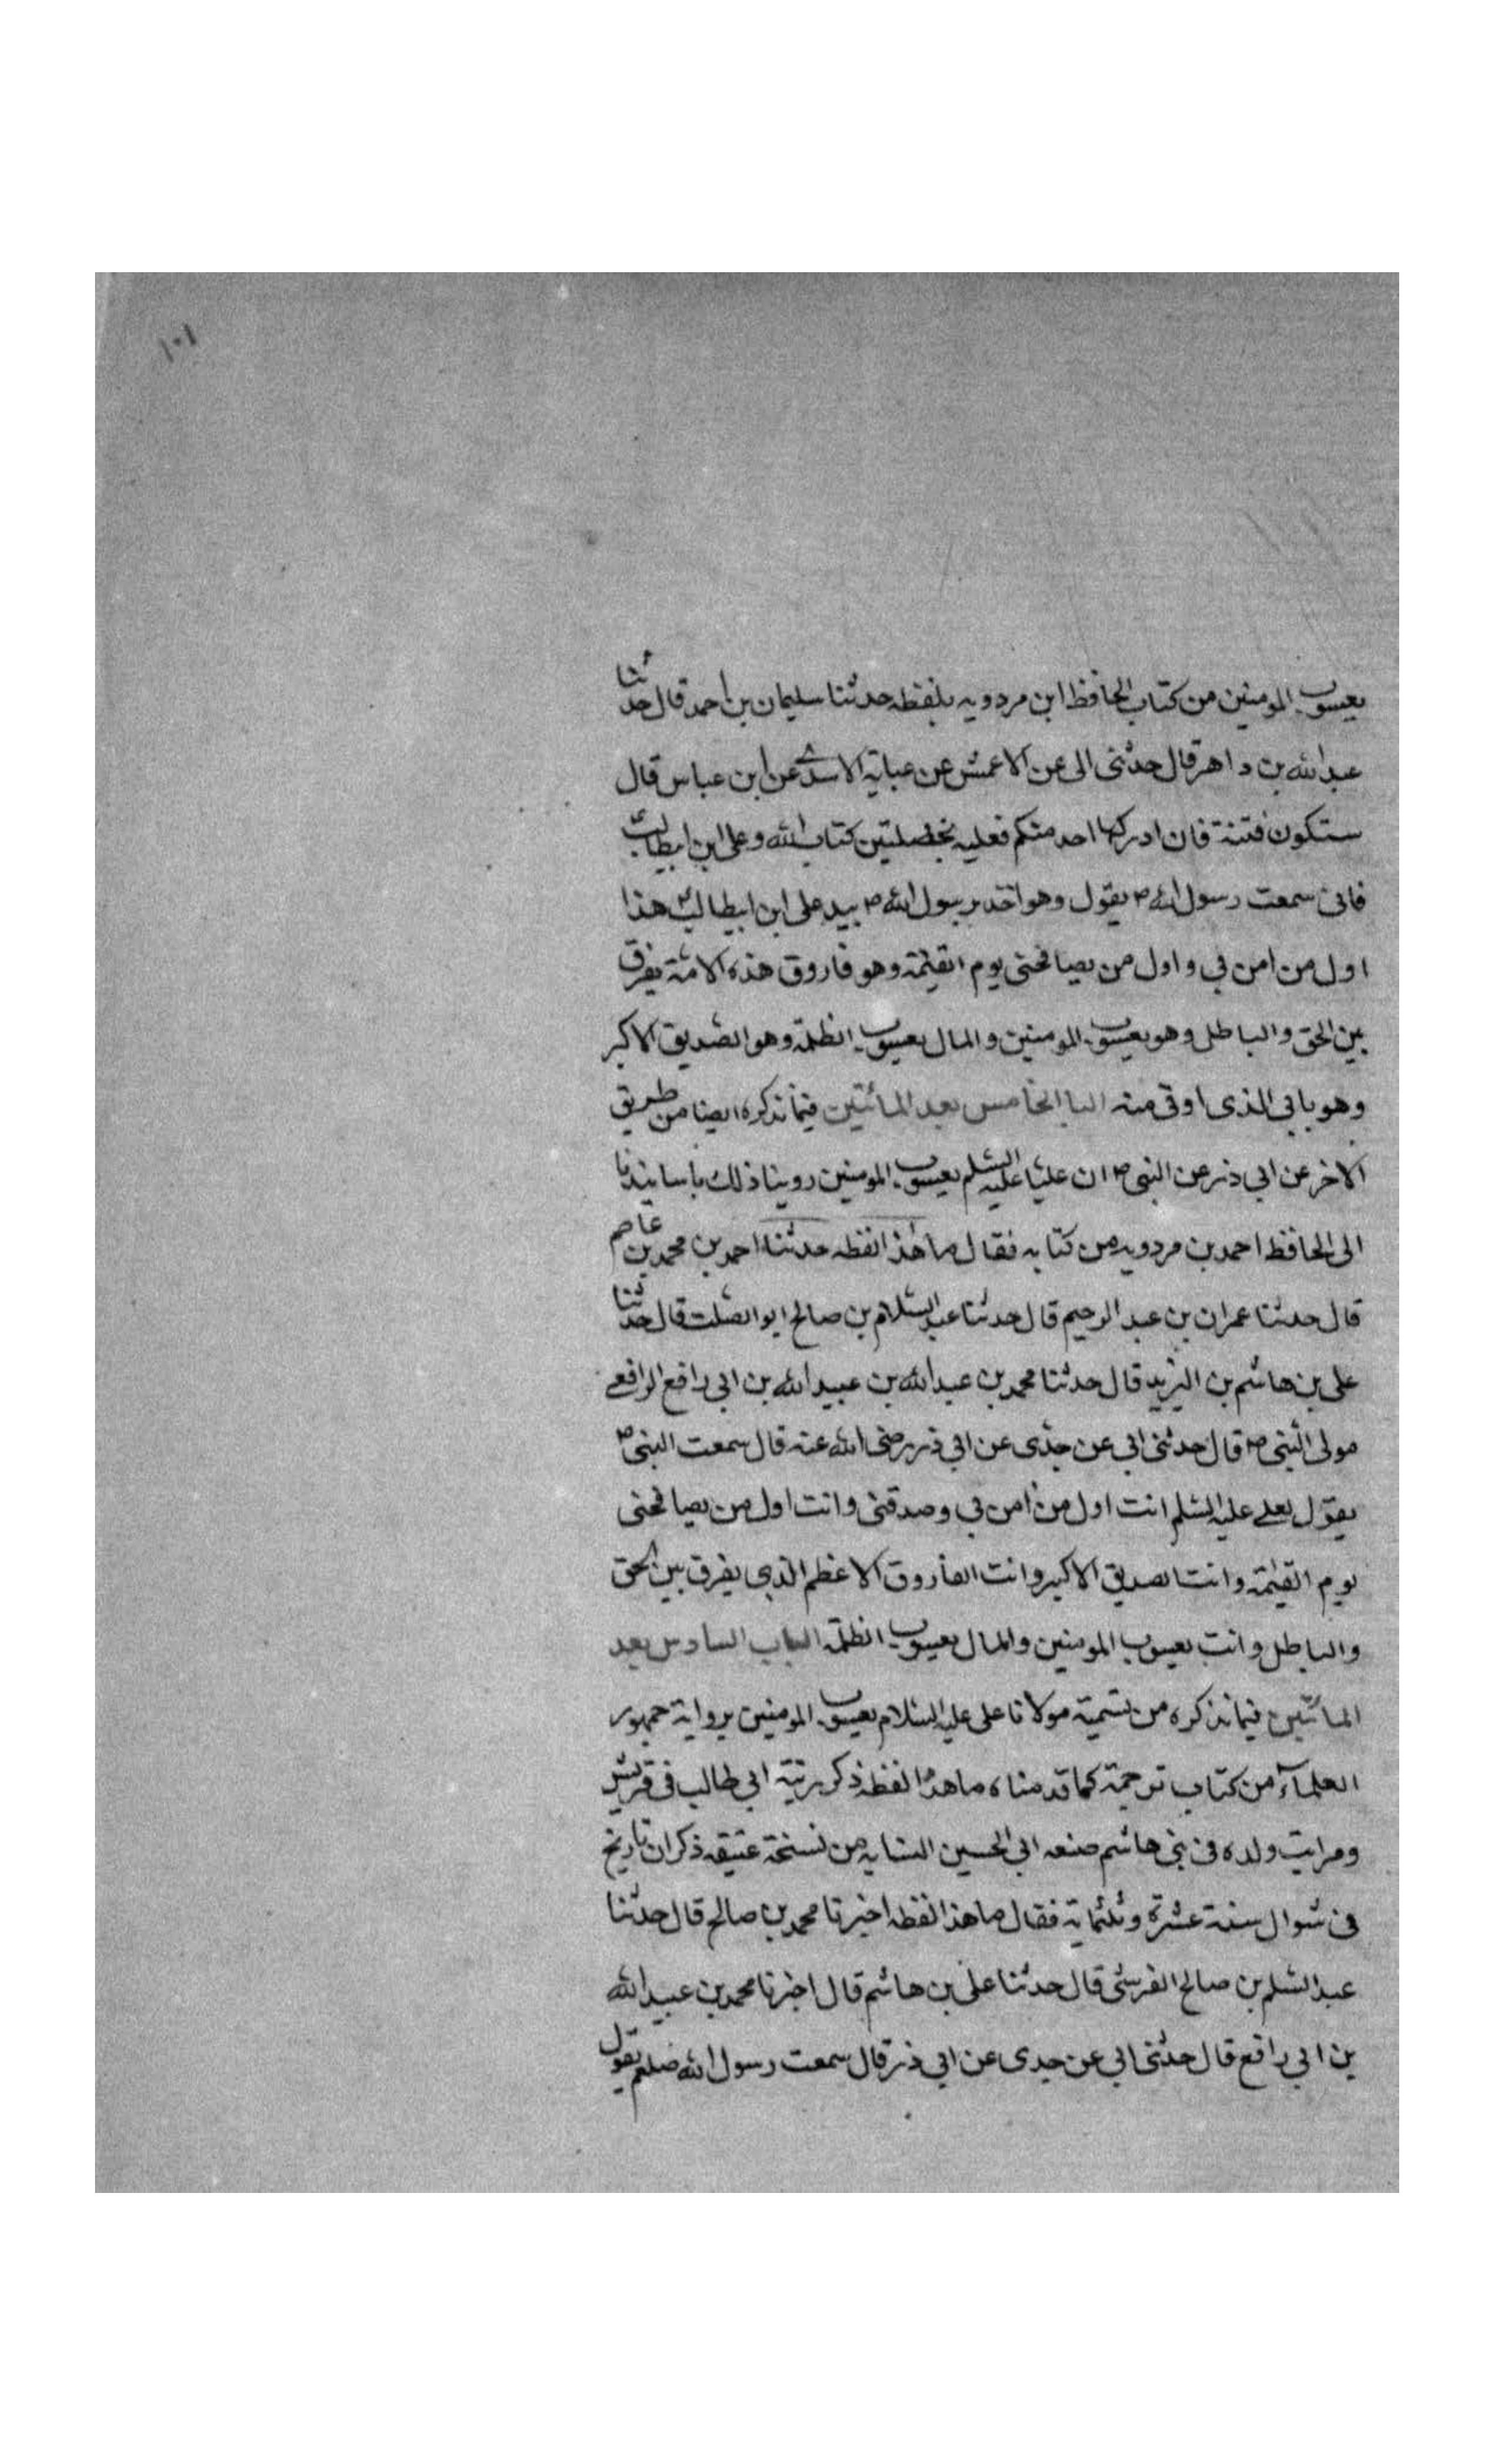 ١٠١
يعسوب المومنين من كتاب الحافظ ابن مردويه بلفظه حدثنا سليمان بن احمد قال حدثنا
عبد الله بن داهر قال حدثنى ابى عن الاعمش عن عباية الاسدى عن ابن عباس قال
ستكون فتنة فان ادركها احد منكم فعليه بخصلتين كتاب الله وعلى ابن ابيطالب
فانى سمعت رسول الله ص يقول وهو اخذ رسول الله ص بيد على ابن ابيطالب هذا
اول من امن بى واول من يصافحنى يوم القيمة وهو فاروق هذه الامة يفرق
بين الحق والباطل وهو يعسوب المومنين والمال يعسوب الظلمة وهو الصديق الاكبر
وهو بابى الذى اوتى منه الباالخامس بعد المائتين فيما نذكره ايضا من طريق
الاخر عن ابى ذر عن النبى ص ان عليا عليه السلم يعسوب المومنين روينا ذلك باسانيدنا
الى الحافظ احمد بن مردويه من كتابه فقال ما هذا لفظه حدثنا احمد بن محمد بن عاصم
قال حدثنا عمران بن عبد الرحيم قال حدثنا عبد السلام بن صالح ابو الصلت قال حدثنا
على بن هاشم بن اليزيد قال حدثنا محمد بن عبد الله بن عبيد الله بن ابى رافع الرافعى
مولى النبى ص قال حدثنى ابى عن جدى عن ابى ذر رضى الله عنه قال سمعت النبى ص
يقول لعلى عليه السلم انت اول من امن بى وصدقنى وانت اول من يصافحنى
يوم القيمة وانت الصديق الاكبر وانت الفاروق الاعظم الذى يفرق بين الحق
والباطل وانت يعسوب المومنين والمال يعسوب الظلمة الباب السادس بعد
المائتين فيما نذكره من تسمية مولانا على عليه السلام يعسوب المومنين برواية جمهور
العلمآء من كتاب ترجمة كما قدمناه ما هذا لفظه ذكر برتبة ابى طالب فى قريش
ومراتب ولده فى بنى هاشم صنعه ابى الحسين النسابه من نسخة عتيقه ذكر ان تاريخ
فى شوال سنة عشرة وثلثماية فقال ما هذا لفظه اخبرنا محمد بن صالح قال حدثنا
عبد السلم بن صالح القرشى قال حدثنا على بن هاشم قال اخبرنا محمد بن عبيد الله
بن ابى رافع قال حدثنى ابى عن جدى عن ابى ذر قال سمعت رسول الله صلعم يقول